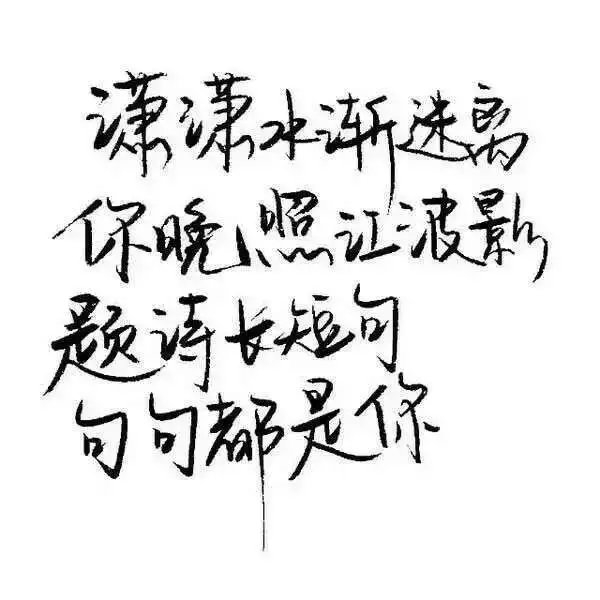 潇潇水渐迷离
你晚照让波影
题诗长短句
句句都是你